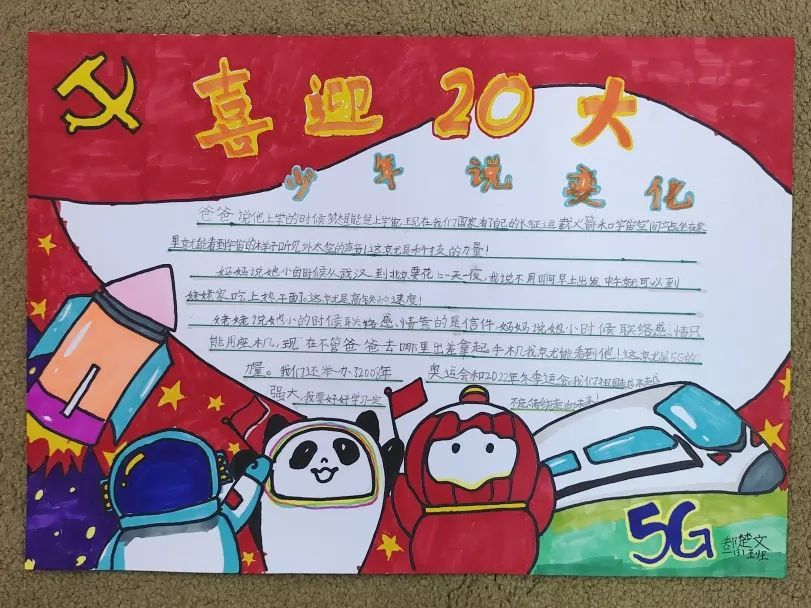 喜迎20大
少年说变化
爸爸说他上学的时候梦想能登上宇宙,现在我们国家有了自己的长征运载火箭和宇宙空间站坐在家
里就能看到宇宙的样子听见外太空的声音!这就是科技的力量!
妈妈说她小的时候从武汉到北京要花上一天一夜,我说不用啊早上出发中午就可以到
姥姥家吃上热干面。这就是高铁的速度!
姥姥说她小的时候联络感情靠的是信件妈妈说她小时候联络感情只
能用座机,现在不管爸爸去哪里出差拿起手机我就能看到他!这就是5G的
力量。我们还举办了2008年 奥运会和2022年冬季运会我们祖国越来越
强大,我要好好学习一定
5G
郝楚文